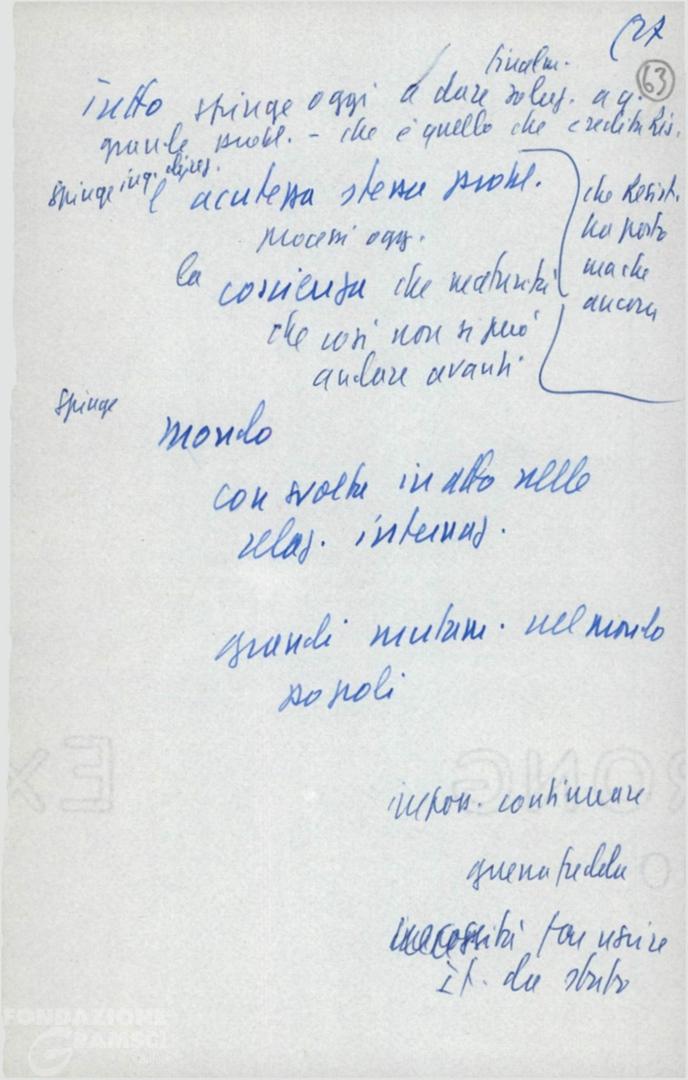 27
63
finalm.
Tutto spinge oggi a dare soluz. a q.
grande probl. - che è quello che eredità Res.
spinge
l'acutezza stessa probl.
processi oggi.
che Resist.
ha posto
ma che
ancora
la coscienza che maturità
che così non si può
andare avanti
spinge
mondo
con svolta in atto nelle
relaz. internaz.
grandi mutam. nel mondo
popoli
imposs. continuare
guerra fredda
necessità far uscire
It. da stato
FONDAZIONE
GRAMSCI